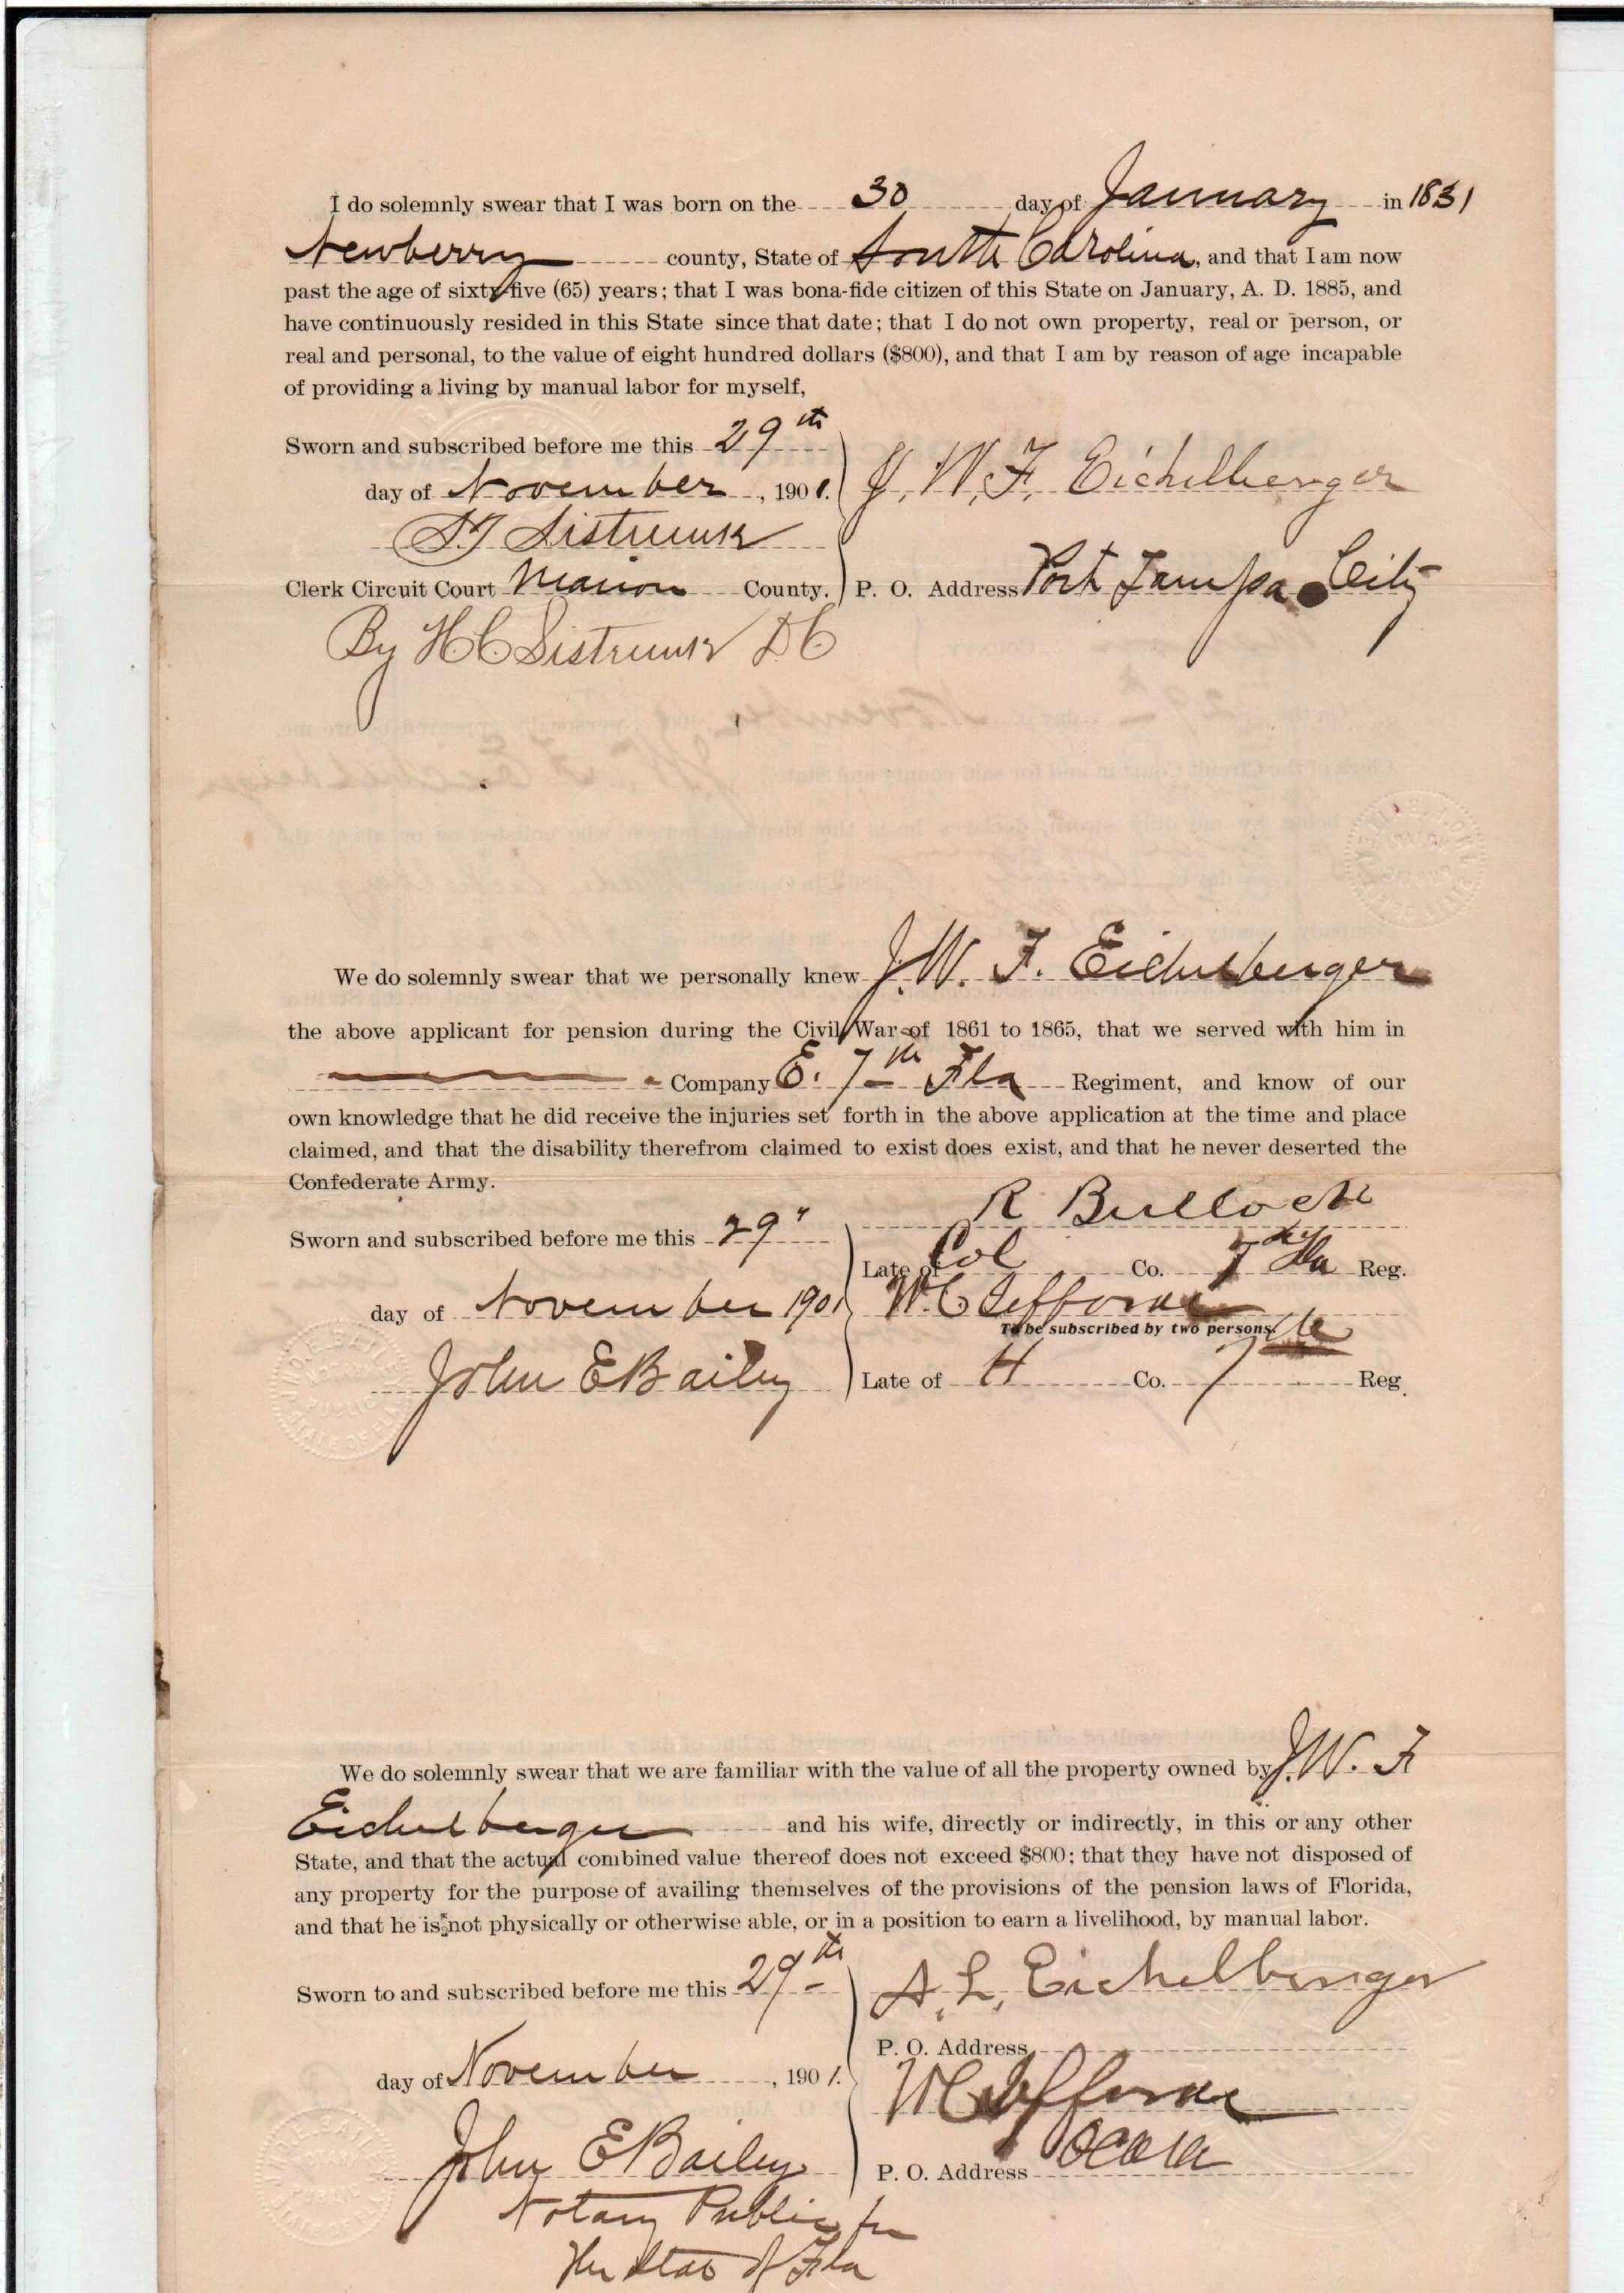 I do solemnly swear that I was born on the 30 day of January in 1831
Newberry county, State of South Carolina, and that I am now
past the age of sixty-five (65) years; that I was bona-fide citizen of this State on January, A. D. 1885, and
have continuously resided in this State since that date; that I do not own property, real or person, or
real and personal, to the value of eight hundred dollars ($800), and that I am by reason of age incapable
of providing a living by manual labor for myself,
Sworn and subscribed before me this 29th
day of November, 1901. J. W. F. Eichelberger
Sistrunk
Clerk Circuit Court Marion County. P. O. Address Port Tampa City
By H C Sistrunk D C
We do solemnly swear that we personally knew J. W. F. Eichelberger
the above applicant for pension during the Civil War of 1861 to 1865, that we served with him in
Company E. 7th Fla Regiment, and know of our
own knowledge that he did receive the injuries set forth in the above application at the time and place
claimed, and that the disability therefrom claimed to exist does exist, and that he never deserted the
Confederate Army.
R Bullock
Sworn and subscribed before me this 29"
Late of Col Co. 7th Fla Reg.
day of November 1901 W. C.
To be subscribed by two persons.
John E Bailey Late of H Co. 7 Reg.
We do solemnly swear that we are familiar with the value of all the property owned by J. W. F
Eichelberger and his wife, directly or indirectly, in this or any other
State, and that the actual combined value thereof does not exceed $800; that they have not disposed of
any property for the purpose of availing themselves of the provisions of the pension laws of Florida,
and that he is not physically or otherwise able, or in a position to earn a livelihood, by manual labor.
Sworn to and subscribed before me this 29th A. L. Eichelberger
P. O. Address
day of November, 1901. W C
John E Bailey P. O. Address Ocala
Notary Public for
the State of Fla